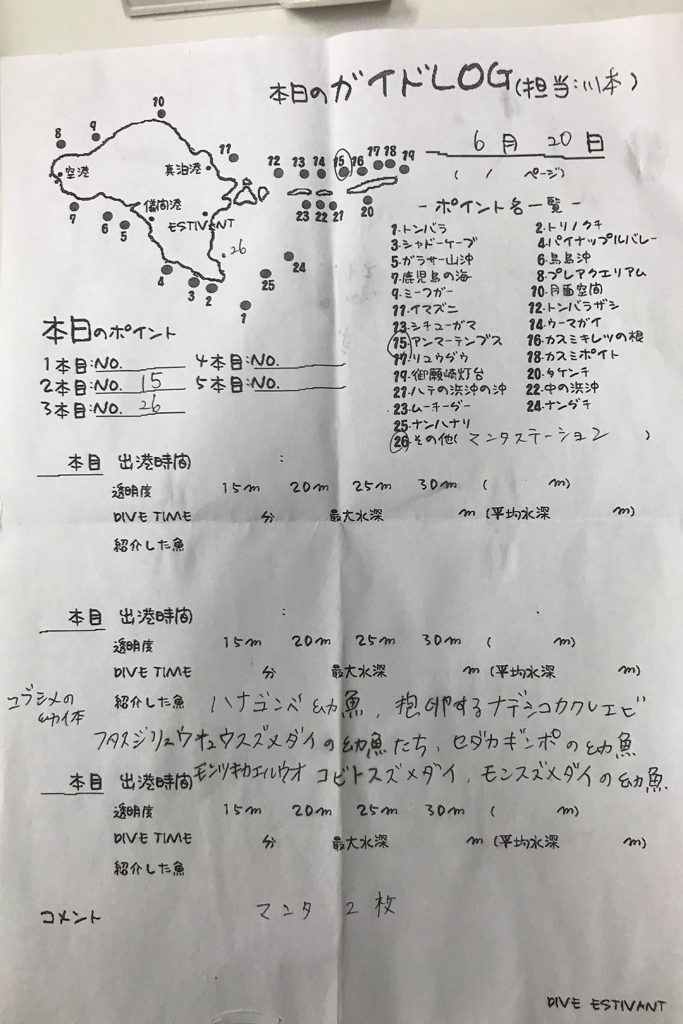 本日のガイドLOG(担当:川本)
6月 20日
( / ページ)
10
8
9
空港
真泊港
11
12 13 14 15 16 17 18 19
儀間港
7
6
5
ESTIVANT
23 22 21
20
26
4
3
2
24
25
1
-ポイント名一覧-
1.トンバラ 2.トリノクチ
3.シャドーケーブ 4.パイナップルバレー
5.ガラサー山沖 6.鳥島沖
7.鹿児島の海 8.プレアクエリアム
9.ミーフガー 10.月面空間
11.イマズニ 12.トンバラザシ
13.シチューガマ 14.ウーマガイ
15.アンマーテンブス 16.カスミキレツの根
17.リュウダウ 18.カスミポイント
19.御願崎灯台 20.タケンチ
21.ハテの浜沖の沖 22.中の浜沖
23.ムーチーダー 24.ナンダチ
25.ナンハナリ
26.その他(マンタステーション )
本日のポイント
1本目:NO. 4本目:NO.
2本目:NO. 15 5本目:NO.
3本目:NO. 26
本目 出港時間 :
透明度 15m 20m 25m 30m ( m)
DIVE TIME 分 最大水深 m (平均水深 m)
紹介した魚
本目 出港時間 :
透明度 15m 20m 25m 30m ( m)
DIVE TIME 分 最大水深 m (平均水深 m)
コブシメの
幼体
紹介した魚 ハナゴンベ幼魚、抱卵するナデシコカクレエビ
フタスジリュウキュウスズメダイの幼魚たち、セダカギンポの幼魚
本目 出港時間 モンツキカエルウオ コビトスズメダイ、モンスズメダイの幼魚
透明度 15m 20m 25m 30m ( m)
DIVE TIME 分 最大水深 m (平均水深 m)
紹介した魚
コメント マンタ 2枚
DIVE ESTIVANT